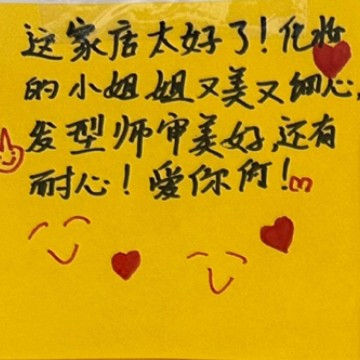 这家店太好了！化妆
的小姐姐又美又细心,
发型师审美好,还有
耐心！爱你们！